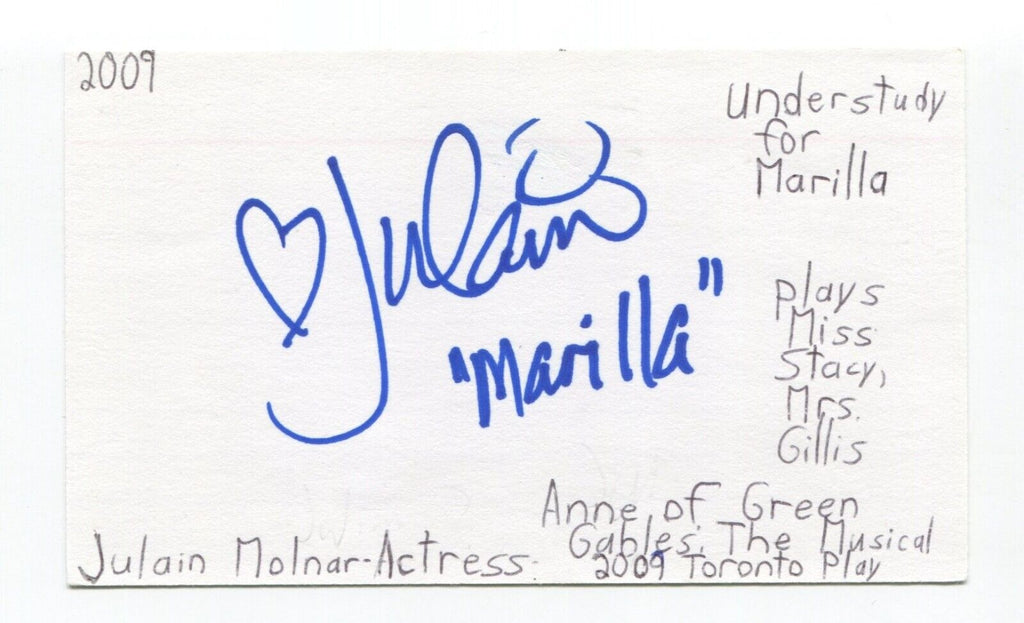 2009
understudy
for
Marilla
♡ Julain
"Marilla"
plays
Miss
Stacy,
Mrs.
Gillis
Julain Molnar-Actress-
Anne of Green
Gables: The Musical
2009 Toronto Play